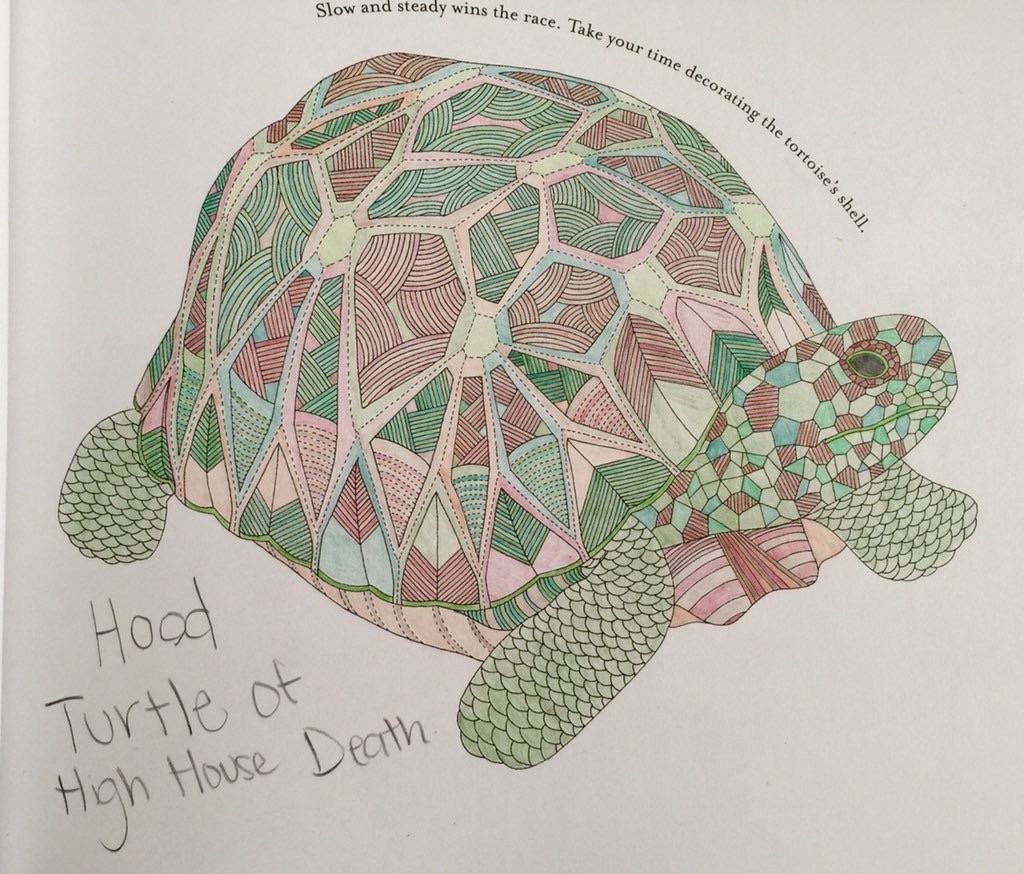 Slow and steady wins the race. Take your time decorating the tortoise's shell.
Hood
Turtle of
High House Death